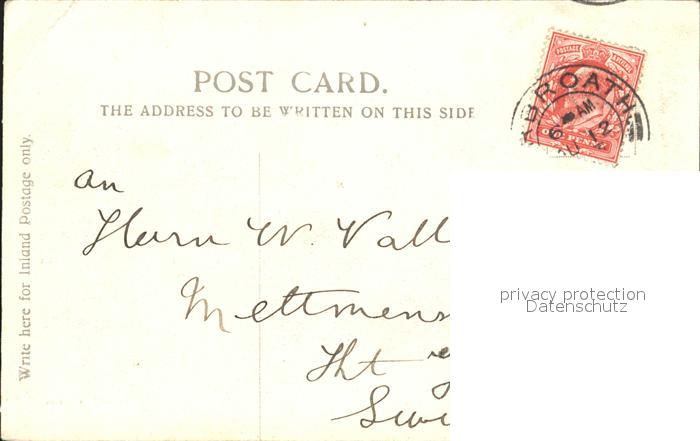 POST CARD.
THE ADDRESS TO BE WRITTEN ON THIS SIDE
Write here for Inland Postage only.
POSTAGE
ONE PENNY
ARBROATH
6 AM
12
an
Herrn W. Vall
Mettmens
Kt
Swi
privacy protection
Datenschutz